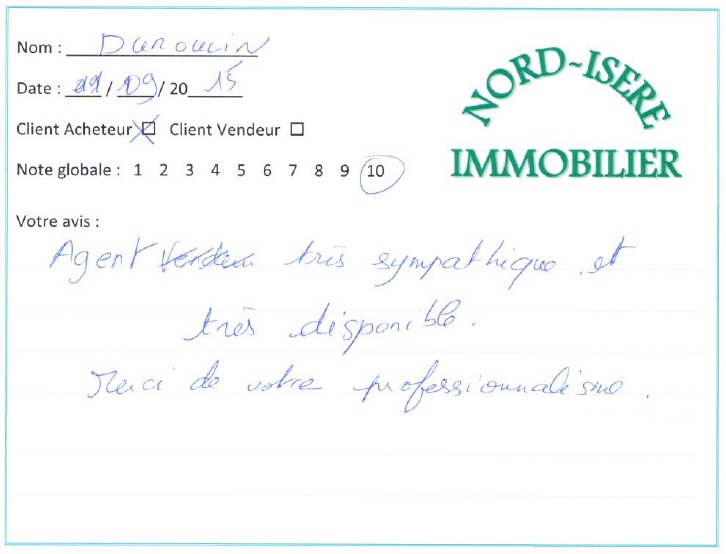 Nom :
Date : / 09 / 20 15
Client Acheteur ☒ Client Vendeur ☐
Note globale : 1 2 3 4 5 6 7 8 9 10
NORD-ISERE
IMMOBILIER
Votre avis :
Agent très sympathique et
très disponible.
Merci de votre professionnalisme.